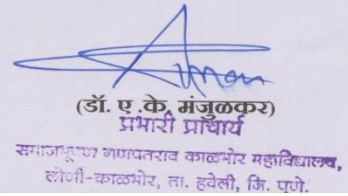 (डॉ. ए.के. मंजुळकर)
प्रभारी प्राचार्य
समाजभूषण गणपतराव काळभोर महाविद्यालय,
लोणी-काळभोर, ता. हवेली, जि. पुणे.